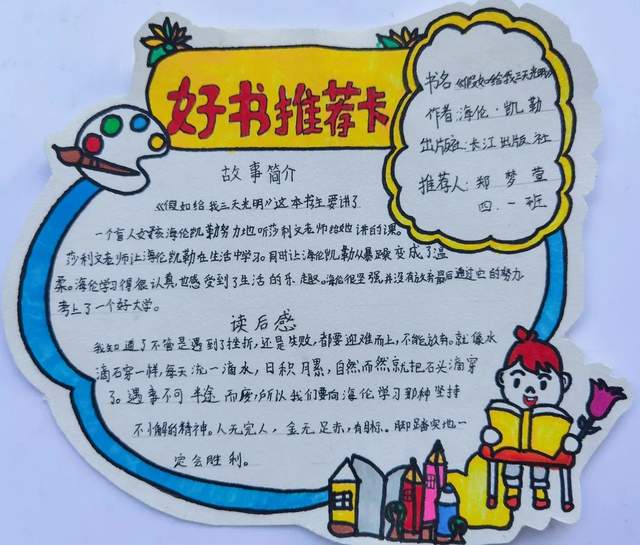 好书推荐卡
书名《假如给我三天光明》
作者:海伦·凯勒
出版社:长江出版社
推荐人:郑梦莹
四.一班
故事简介
《假如给我三天光明》这本书主要讲了
一个盲人女孩海伦凯勒努力地听莎利文老师给她讲的课。
莎利文老师让海伦凯勒在生活中学习。同时让海伦凯勒从暴躁变成了温
柔。海伦学习得很认真,也感受到了生活的乐趣。海伦很坚强,并没有放弃最后通过它的努力
考上了一个好大学。
读后感
我知道了不管是遇到了挫折,还是失败,都要迎难而上,不能放弃。就像水
滴石穿一样,每天流一滴水,日积月累,自然而然就把石头滴穿
了。遇事不可半途而废,所以我们要向海伦学习那种坚持
不懈的精神。人无完人,金无足赤,有目标。脚踏实地一
定会胜利。